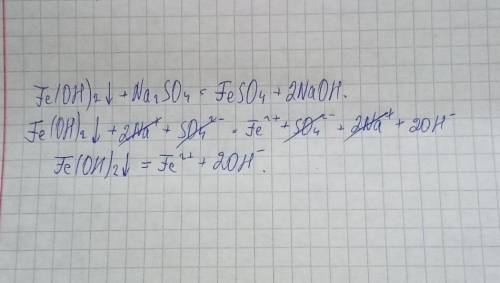 Fe(OH)₂↓ + Na₂SO₄ = FeSO₄ + 2NaOH.
Fe(OH)₂↓ + 2Na⁺ + SO₄²⁻ = Fe²⁺ + SO₄²⁻ + 2Na⁺ + 2OH⁻
Fe(OH)₂↓ = Fe²⁺ + 2OH⁻.